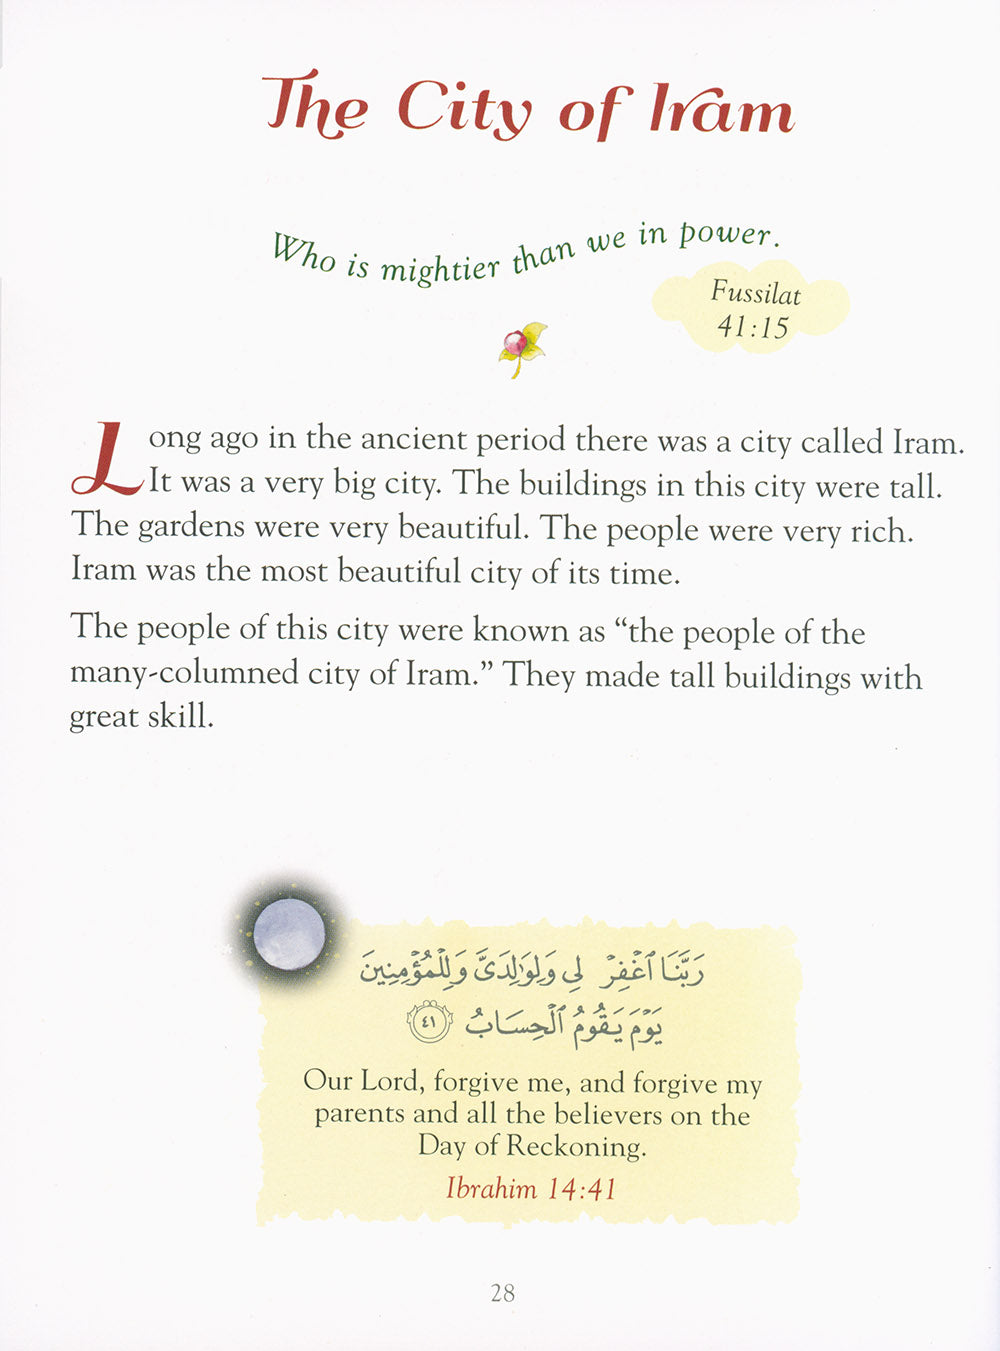 The City of Iram
Who is mightier than we in power.
Fussilat
41:15
Long ago in the ancient period there was a city called Iram.
It was a very big city. The buildings in this city were tall.
The gardens were very beautiful. The people were very rich.
Iram was the most beautiful city of its time.
The people of this city were known as “the people of the
many-columned city of Iram.” They made tall buildings with
great skill.
رَبَّنَا ٱغْفِرْ لِى وَلِوَٰلِدَىَّ وَلِلْمُؤْمِنِينَ
يَوْمَ يَقُومُ ٱلْحِسَابُ ٤١
Our Lord, forgive me, and forgive my
parents and all the believers on the
Day of Reckoning.
Ibrahim 14:41
28